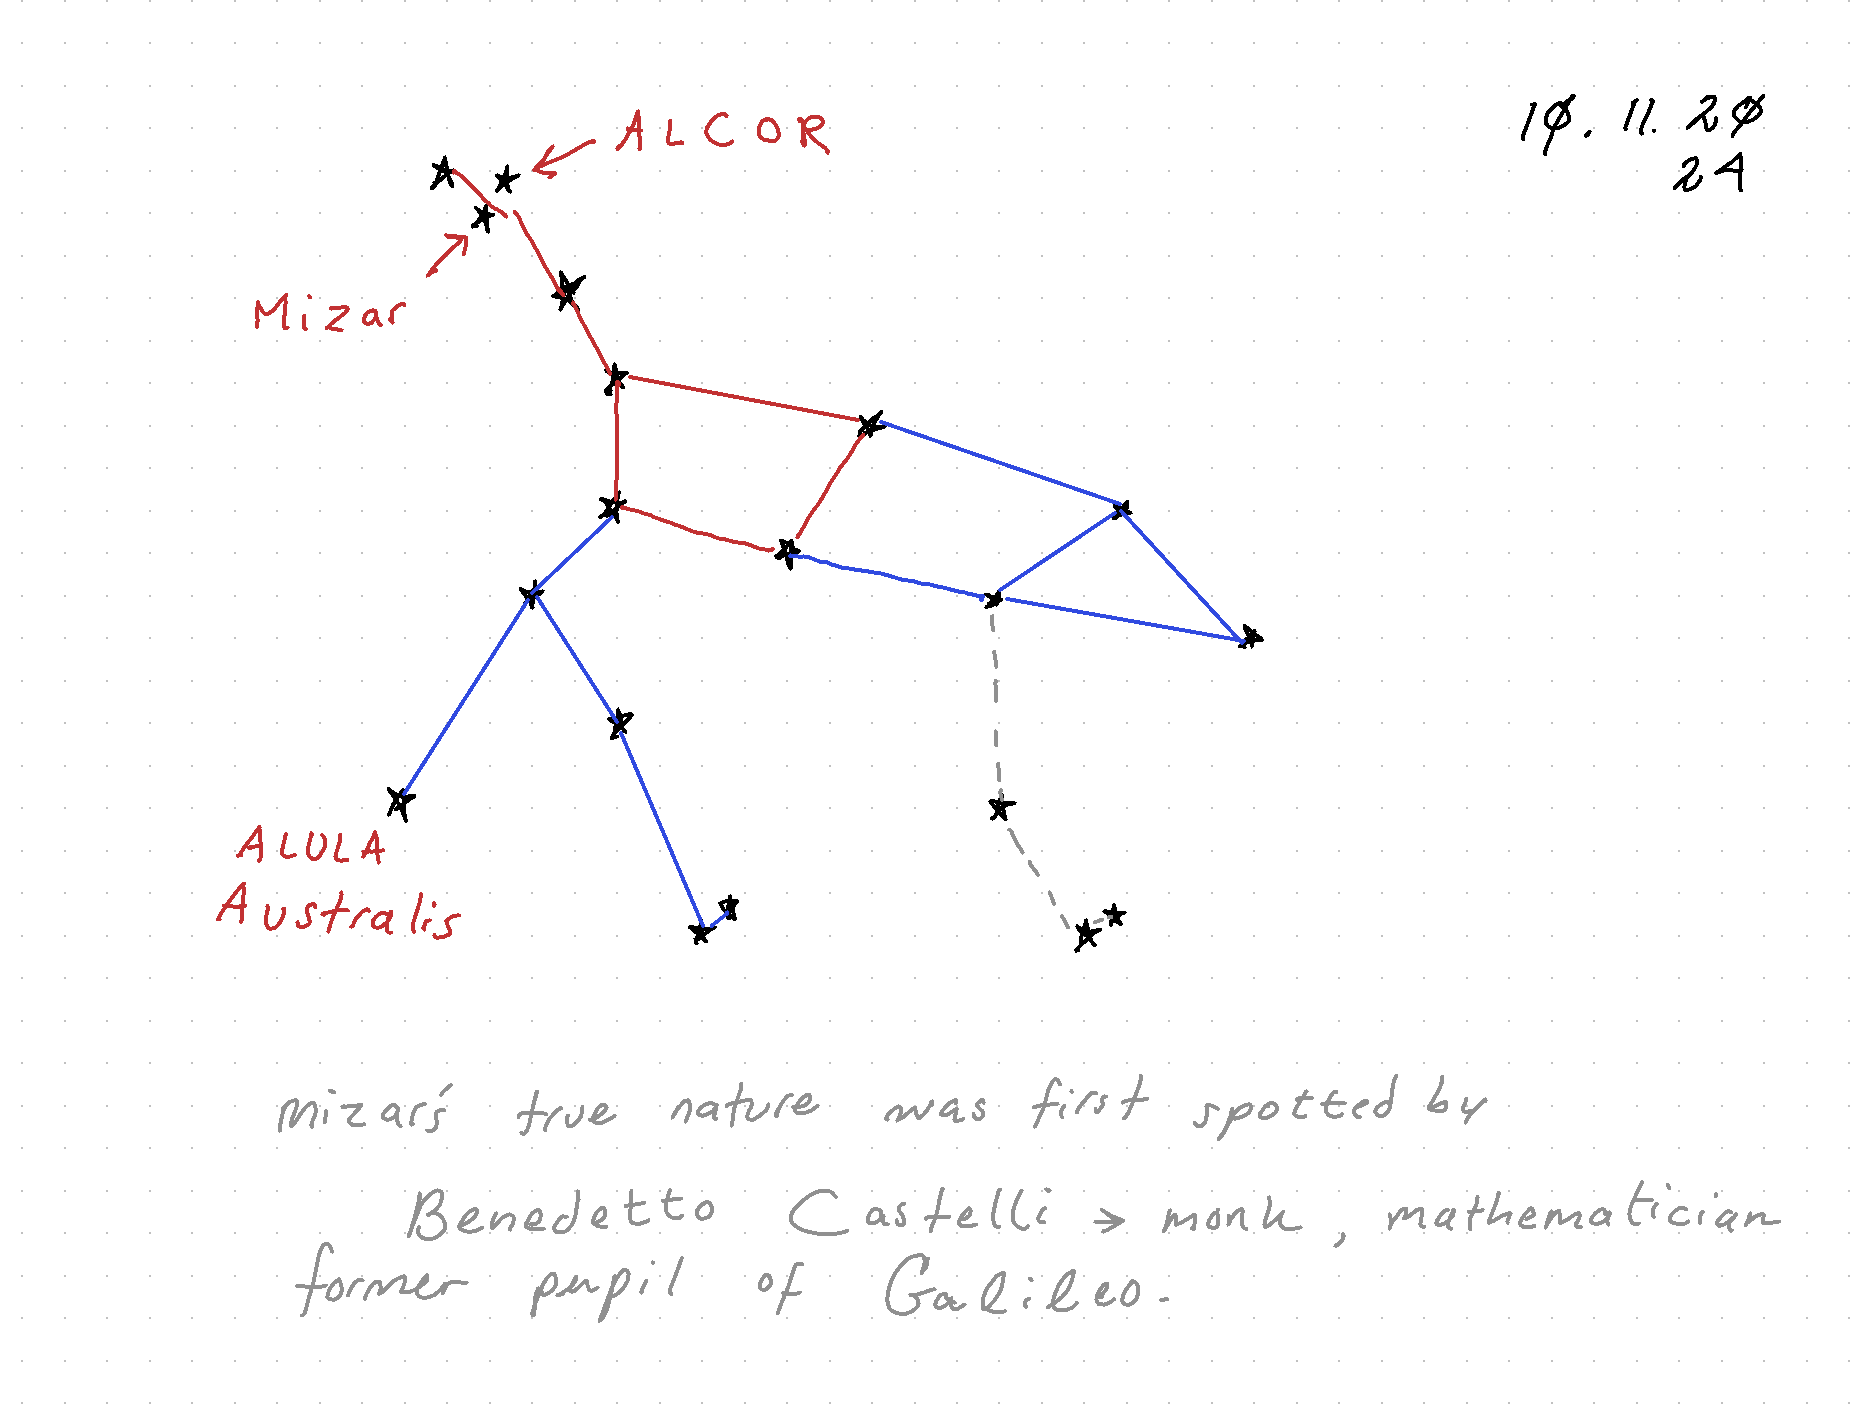 10.11.20
24
ALCOR
Mizar
ALULA
Australis
mizar's true nature was first spotted by
Benedetto Castelli → monk, mathematician
former pupil of Galileo.